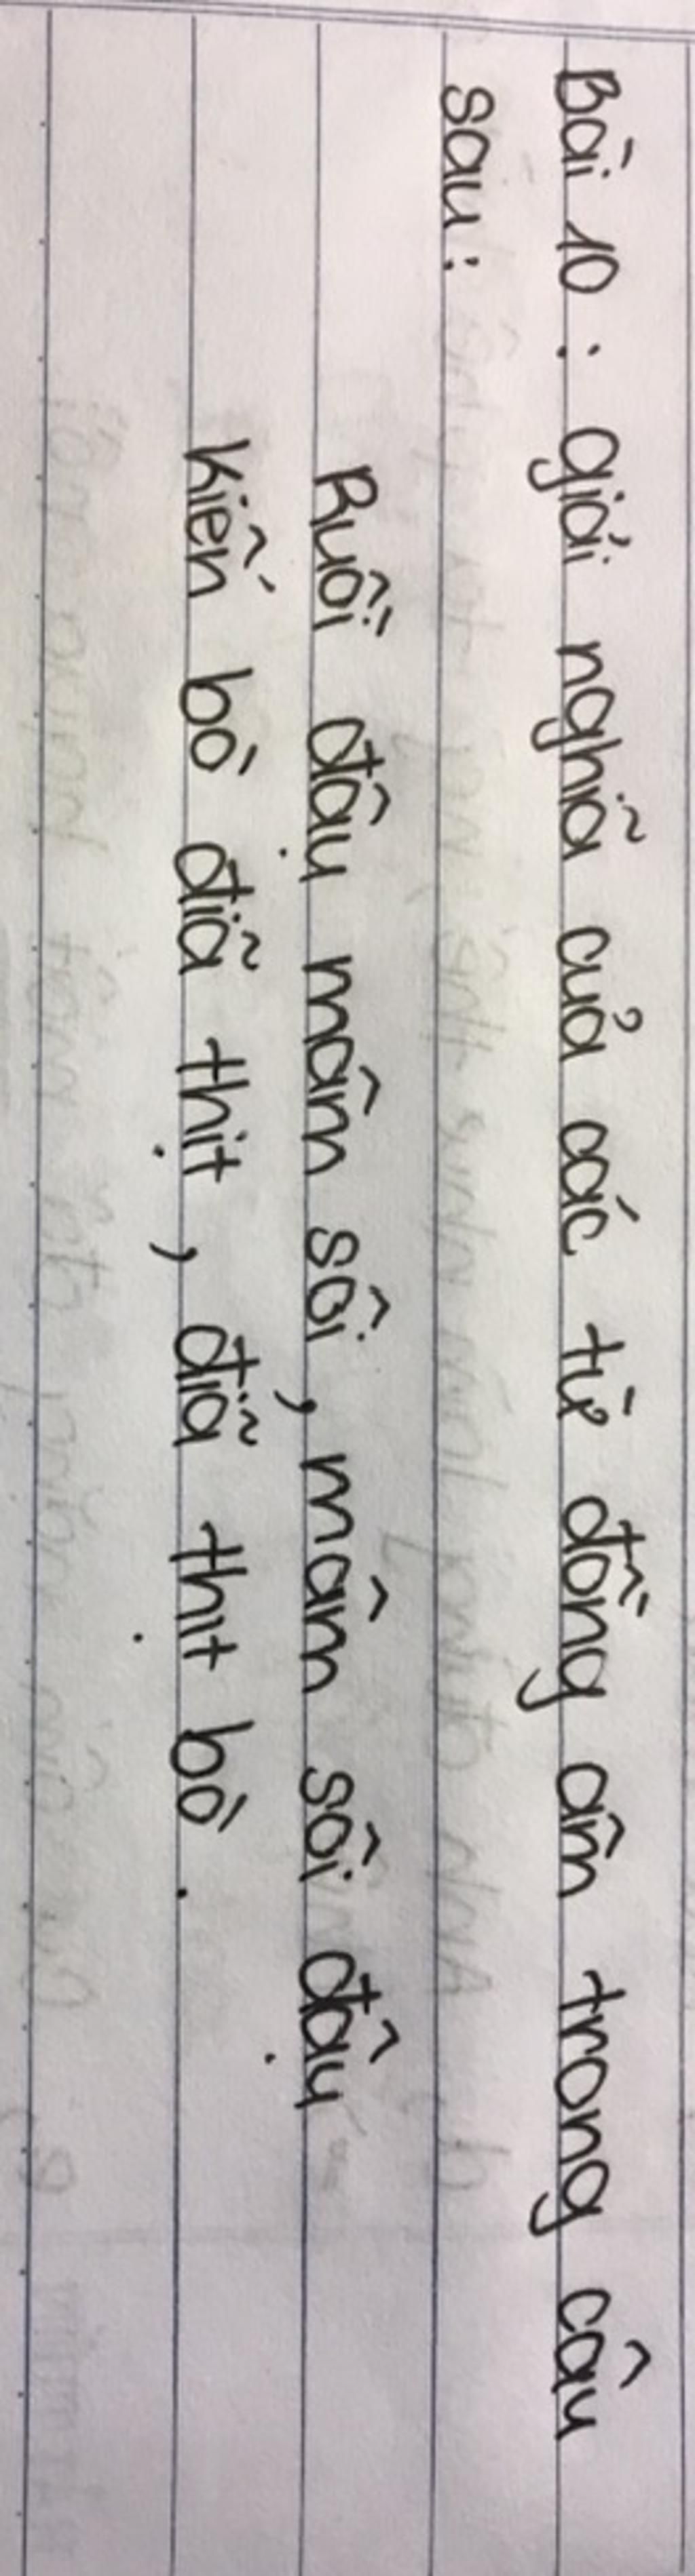 Bài 10 : giải nghĩa của các từ đồng âm trong câu
sau :
Ruồi đậu mâm sôi, mâm sôi đậu
Kiến bò đĩa thịt, đĩa thịt bò.